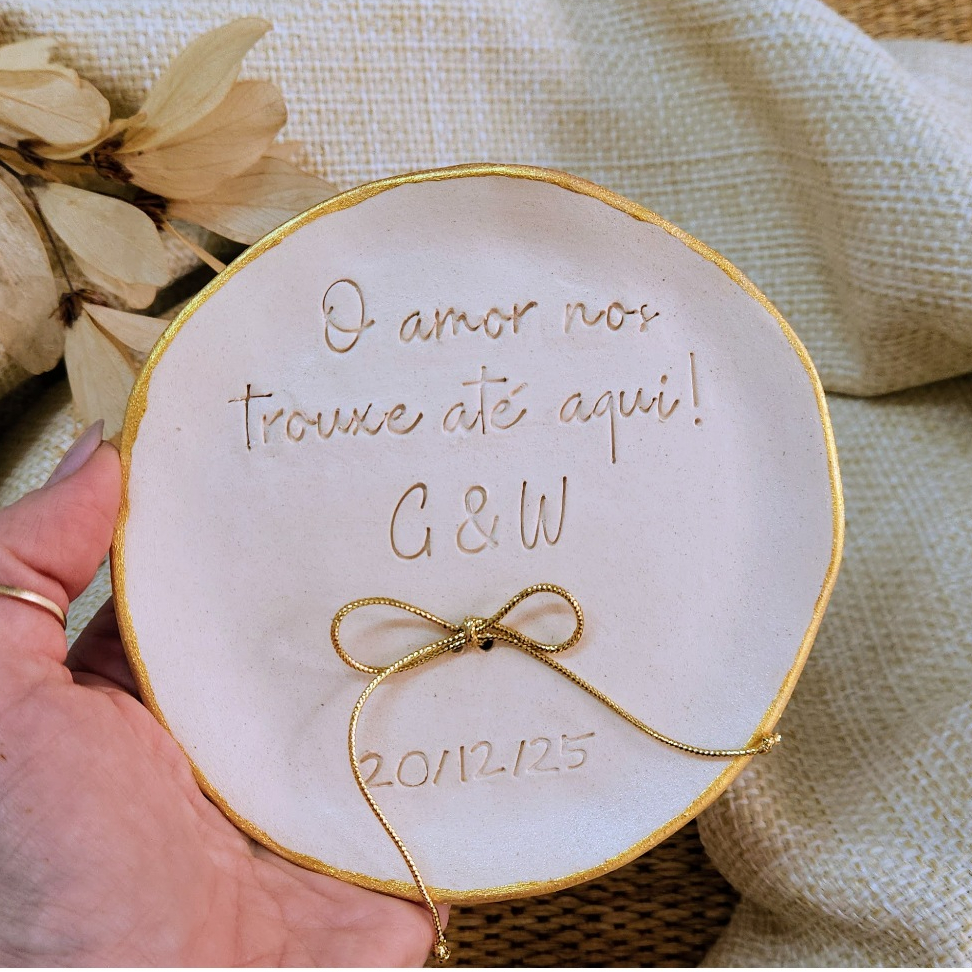 O amor nos
trouxe até aqui!
G & W
20/12/25